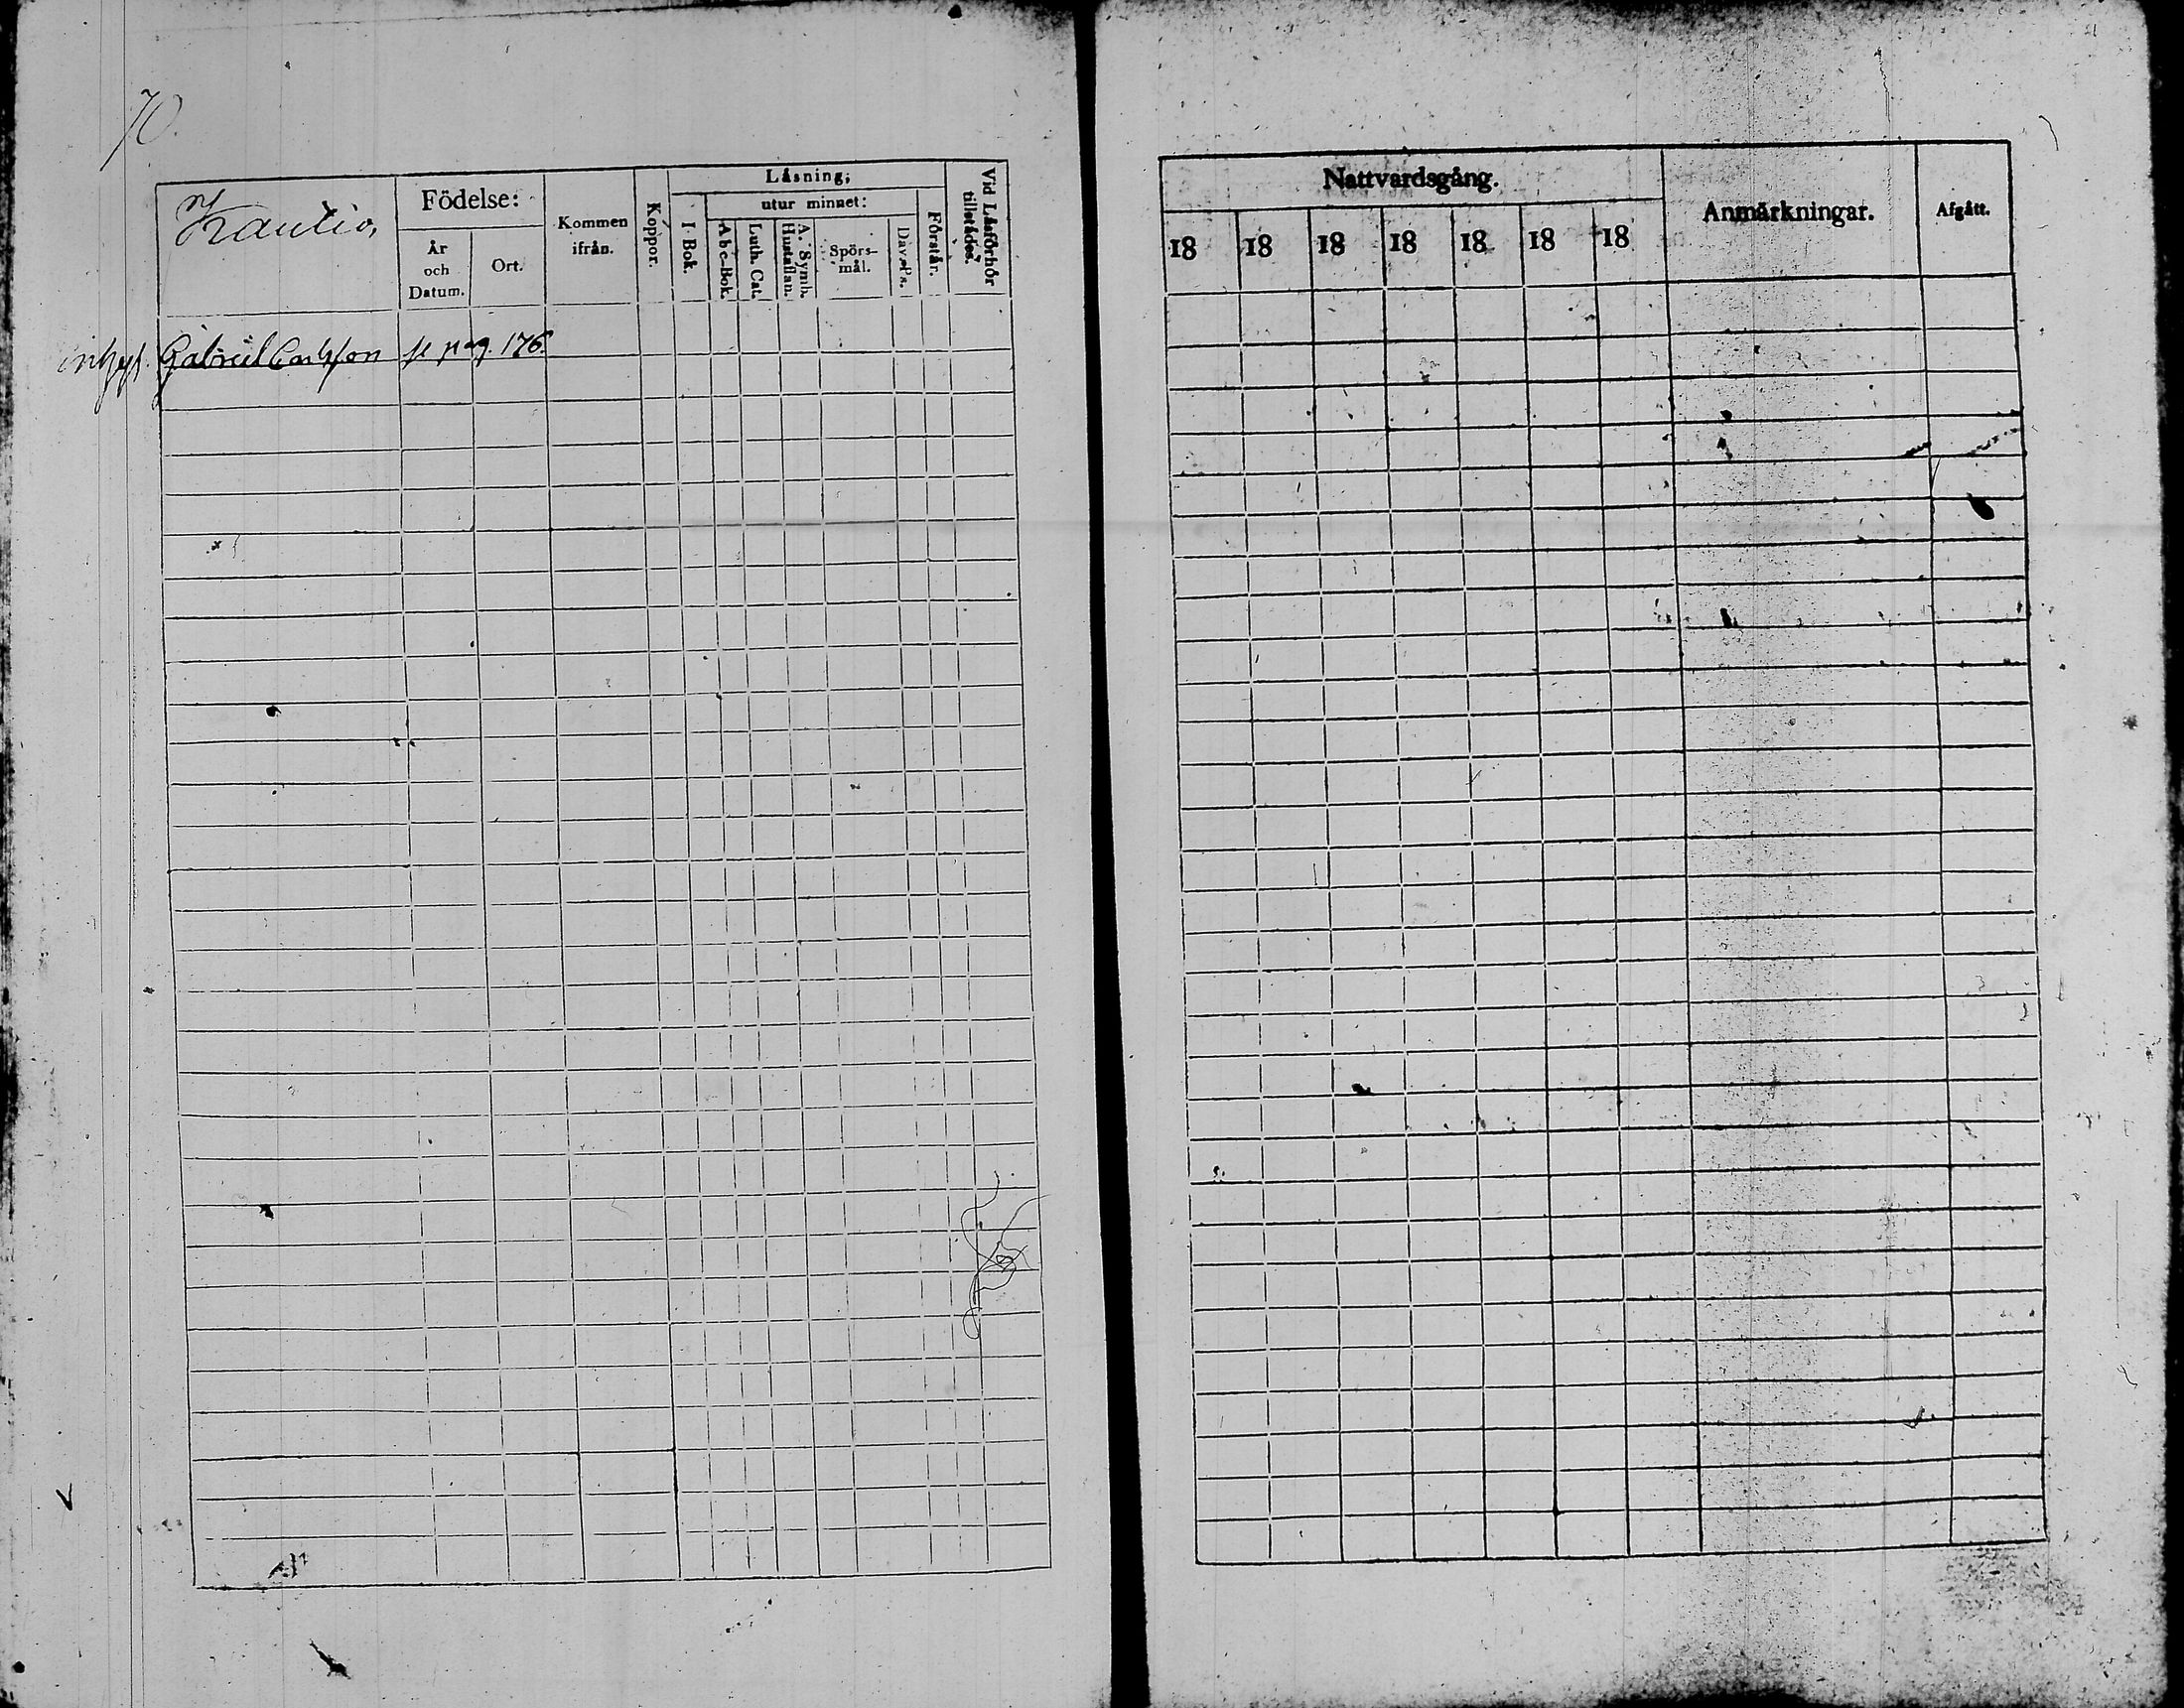 70.
Kautio,
Födelse:
År och Datum.
Ort.
Kommen ifrån.
Koppor.
Läsning;
I Bok.
utur minnet:
Abc-Bok.
Luth. Cat.
A. Symb. Hustaflan.
Spörs-mål.
Dav. Ps.
Förstår.
Vid Läsförhör tillstädes.
Gabriel Carlsson se pag. 176.
Nattvardsgång.
18 18 18 18 18 18 18
Anmärkningar.
Afgått.